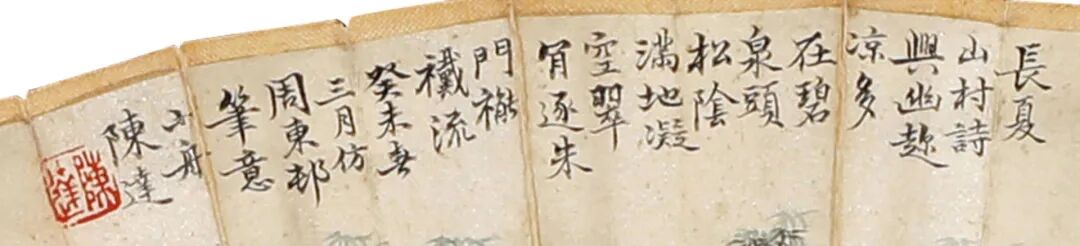 長夏
山村詩
興幽趂
凉多
在碧
泉頭
松陰
滿地凝
空翠
肯逐朱
門褦
襶流
癸未春
三月仿
周東邨
筆意
舟
陳達
陳達